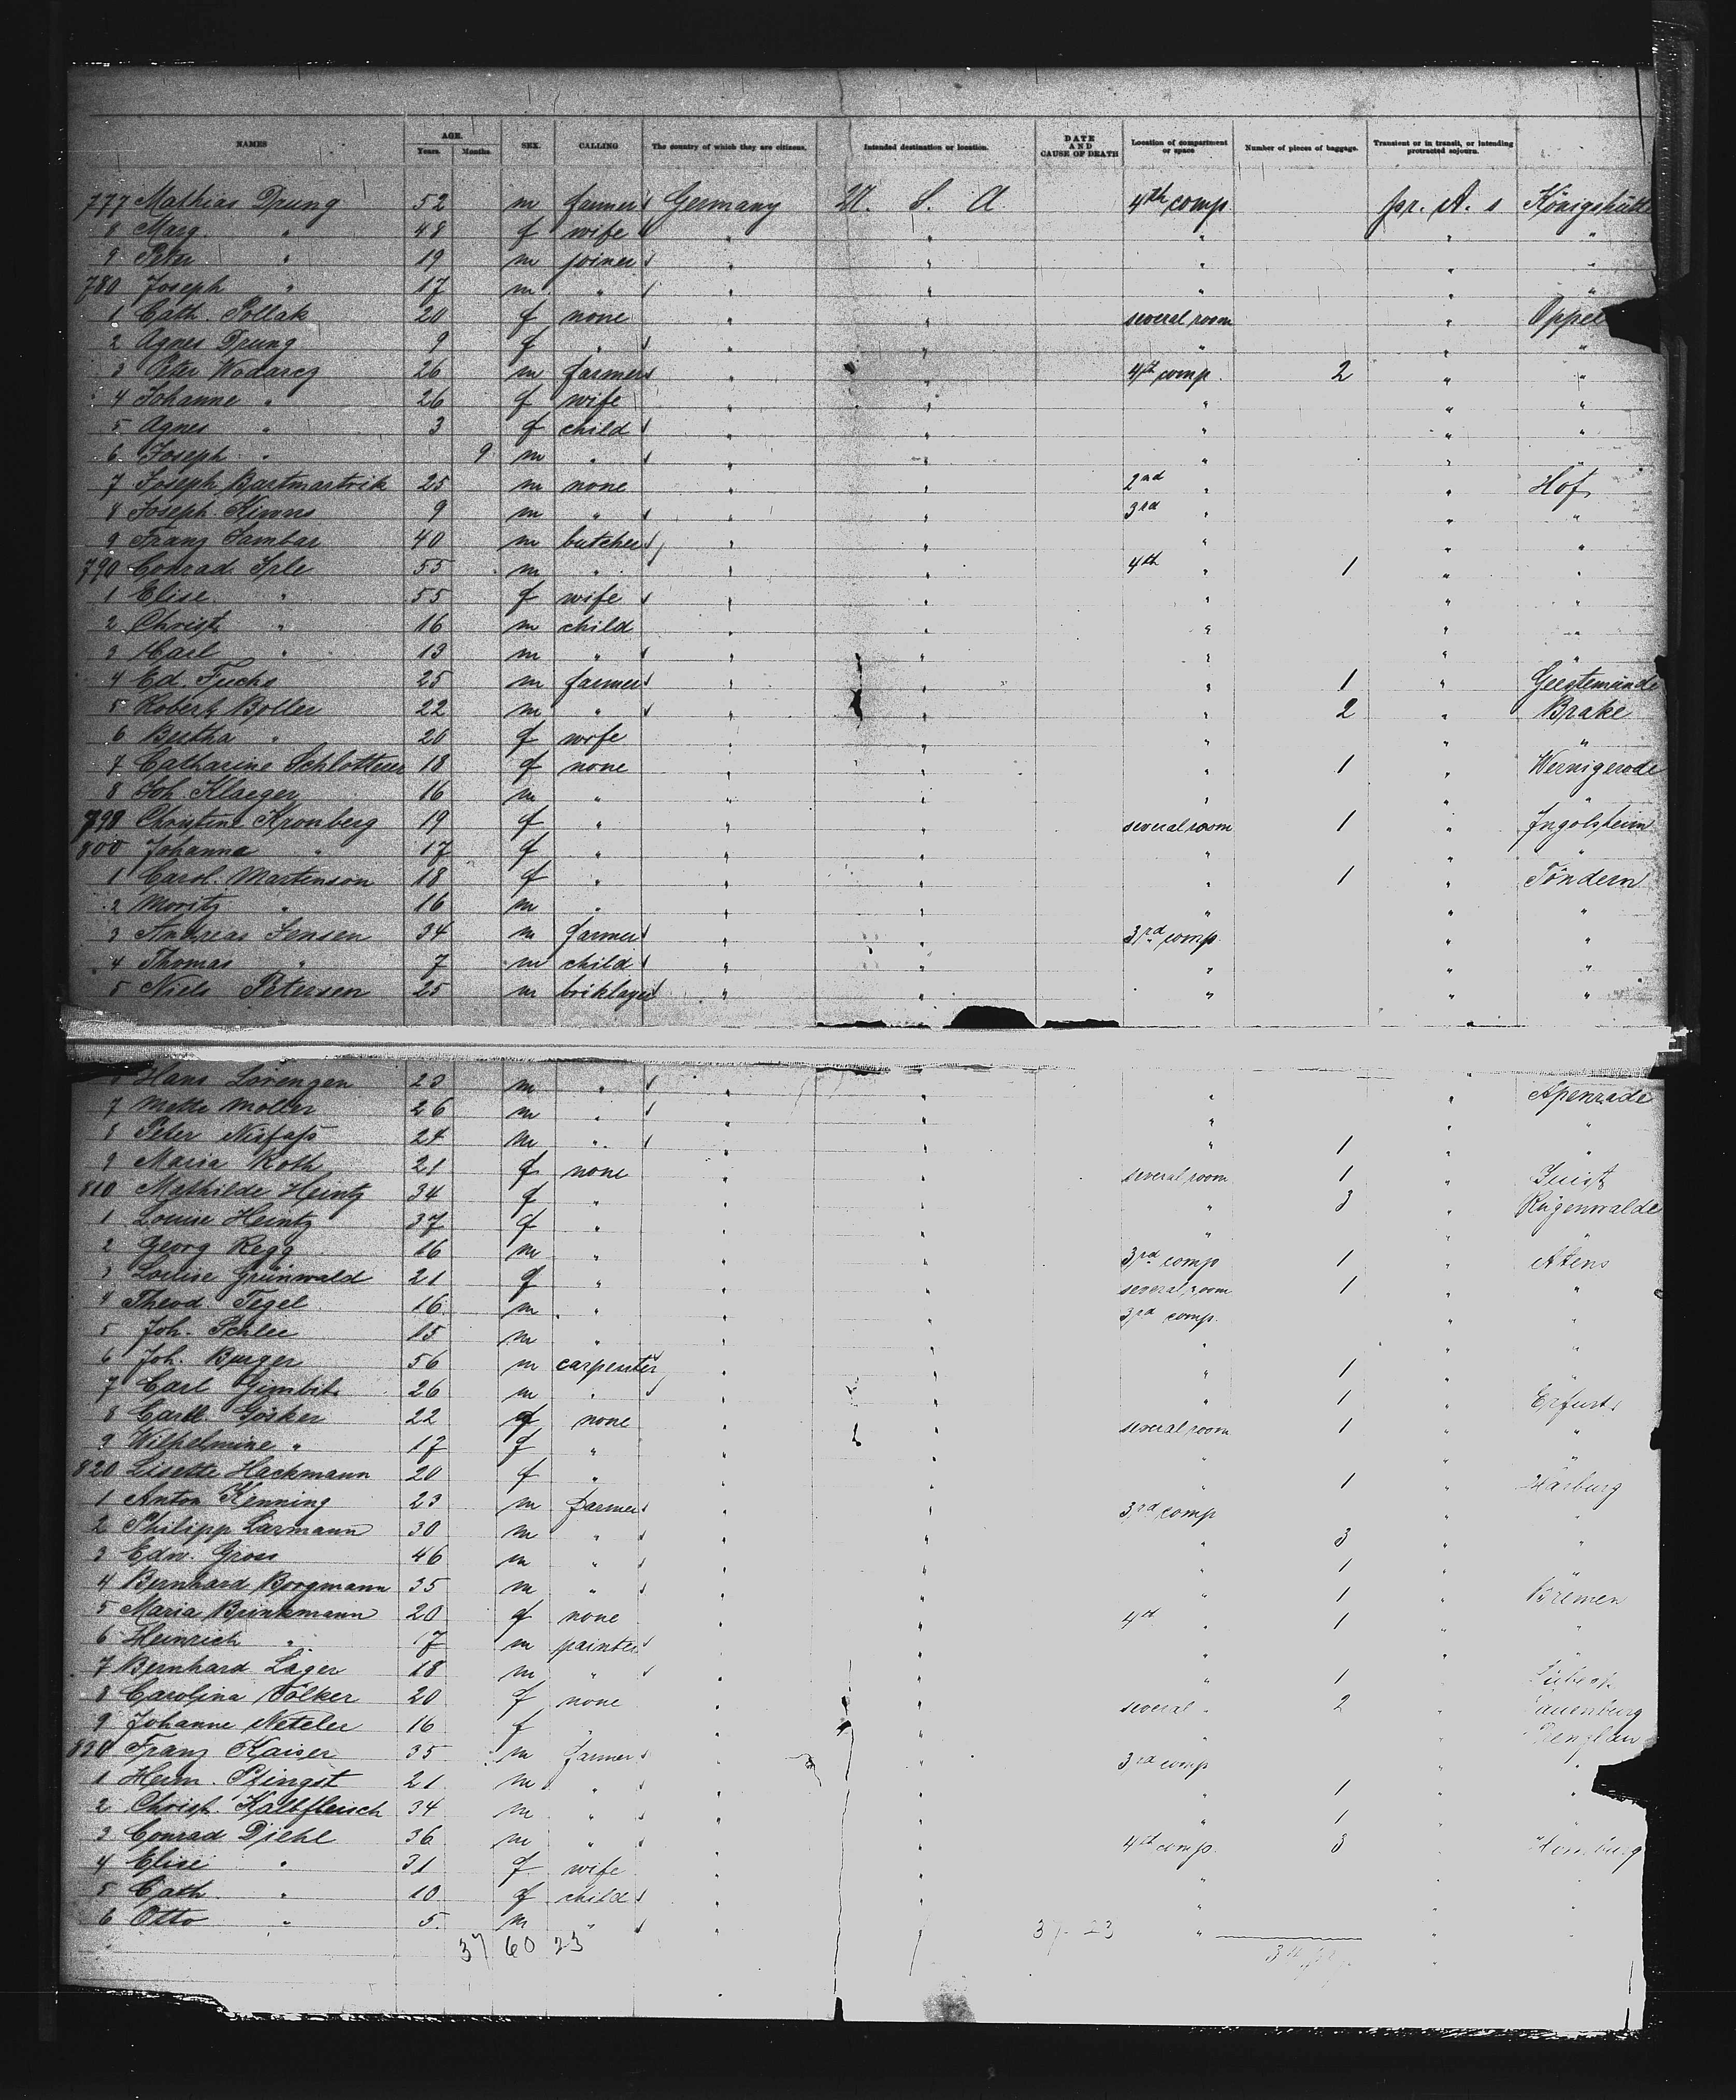 NAMES AGE. Years. Months. SEX. CALLING The country of which they are citizens. Intended destination or location. DATE AND CAUSE OF DEATH Location of compartment or space Number of pieces of baggage. Transient or in transit, or intending protracted sojourn.
777 Mathias Drung 52 m farmer Germany U. S. A 4th comp. pr. A. s Königshütte
8 Marg. " 48 f wife " " " " "
9 Peter " 19 m joiner " " " " "
780 Joseph " 17 m " " " " " "
1 Cath. Pollak 20 f none " " several room " Oppel
2 Agnes Drung 9 f " " " " " "
3 Peter Wodarcz 26 m farmer " " 4th comp. 2 " "
4 Johanne " 26 f wife " " " " "
5 Agnes " 3 f child " " " " "
6 Joseph " 9 m " " " " " "
7 Joseph Bartmartvik 25 m none " " 2nd " " Hof
8 Joseph Kimns 9 m " " " 3rd " " "
9 Franz Jambar 40 m butcher " " " " "
790 Conrad Irle 55 m " " " 4th " 1 " "
1 Elise " 55 f wife " " " " "
2 Christ. " 16 m child " " " " "
3 Carl " 13 m " " " " " "
4 Ed Fuchs 25 m farmer " " " 1 " Geestemünde
5 Robert Boller 22 m " " " " 2 " Brake
6 Bertha " 20 f wife " " " " "
7 Catharine Schlotterer 18 f none " " " 1 " Wernigerode
8 Joh. Klaeger 16 m " " " " " "
799 Christine Kronberg 19 f " " " several room 1 " Ingolsheim
800 Johanna " 17 f " " " " " "
1 Carol. Martenson 18 f " " " " 1 " Tondern
2 Moritz " 16 m " " " " " "
3 Andreas Jensen 34 m farmer " " 3rd comp. " "
4 Thomas " 7 m child " " " " "
5 Niels Petersen 25 m briklayer " " " " "
Hans Lorenzen 20 m " " " " " Apenrade
7 Mette Moller 26 m " " " " " "
8 Peter Nisfass 24 m " " " " 1 " "
9 Maria Roth 21 f none " " several room 1 " Juist
810 Mathilde Heintz 34 f " " " " 3 " Rügenwalde
1 Louise Heintz 37 f " " " " " "
2 Georg Regg 16 m " " " 3rd comp 1 " Atens
3 Louise Grünwald 21 f " " " several room 1 " "
4 Theod. Tegel 16 m " " " 3rd comp. " "
5 Joh. Schlee 15 m " " " " " "
6 Joh. Burger 56 m carpenter " " " 1 " "
7 Carl Gimbit 26 m " " " " 1 " Erfurt
8 Carll Gösker 22 f none " " several room 1 " "
9 Wilhelmine " 17 f " " " " " "
820 Lisette Hackmann 20 f " " " " 1 " Harburg
1 Anton Kenning 23 m farmer " " 3rd comp " "
2 Philipp Larmann 30 m " " " " 3 " "
3 Edw. Gross 46 m " " " " 1 " "
4 Bernhard Borgmann 35 m " " " " 1 " Bremen
5 Maria Brinkmann 20 f none " " 4th " 1 " "
6 Heinrich " 17 m painter " " " " "
7 Bernhard Läger 18 m " " " " 1 " Lübeck
8 Carolina Völker 20 f none " " several " 2 " Lauenburg
9 Johanne Neteler 16 f " " " " " Prenzlau
820 Franz Kaiser 35 m farmer " " 3rd comp " "
1 Herm. Pfingst 21 m " " " " 1 " "
2 Christ. Kalbfleisch 34 m " " " " 1 "
3 Conrad Diehl 36 m " " " 4th comp. 3 " Homburg
4 Elise " 31 f wife " " " " "
5 Cath. " 10 f child " " " " "
6 Otto " 5 m " " " " " "
37 60 23 37 - 23